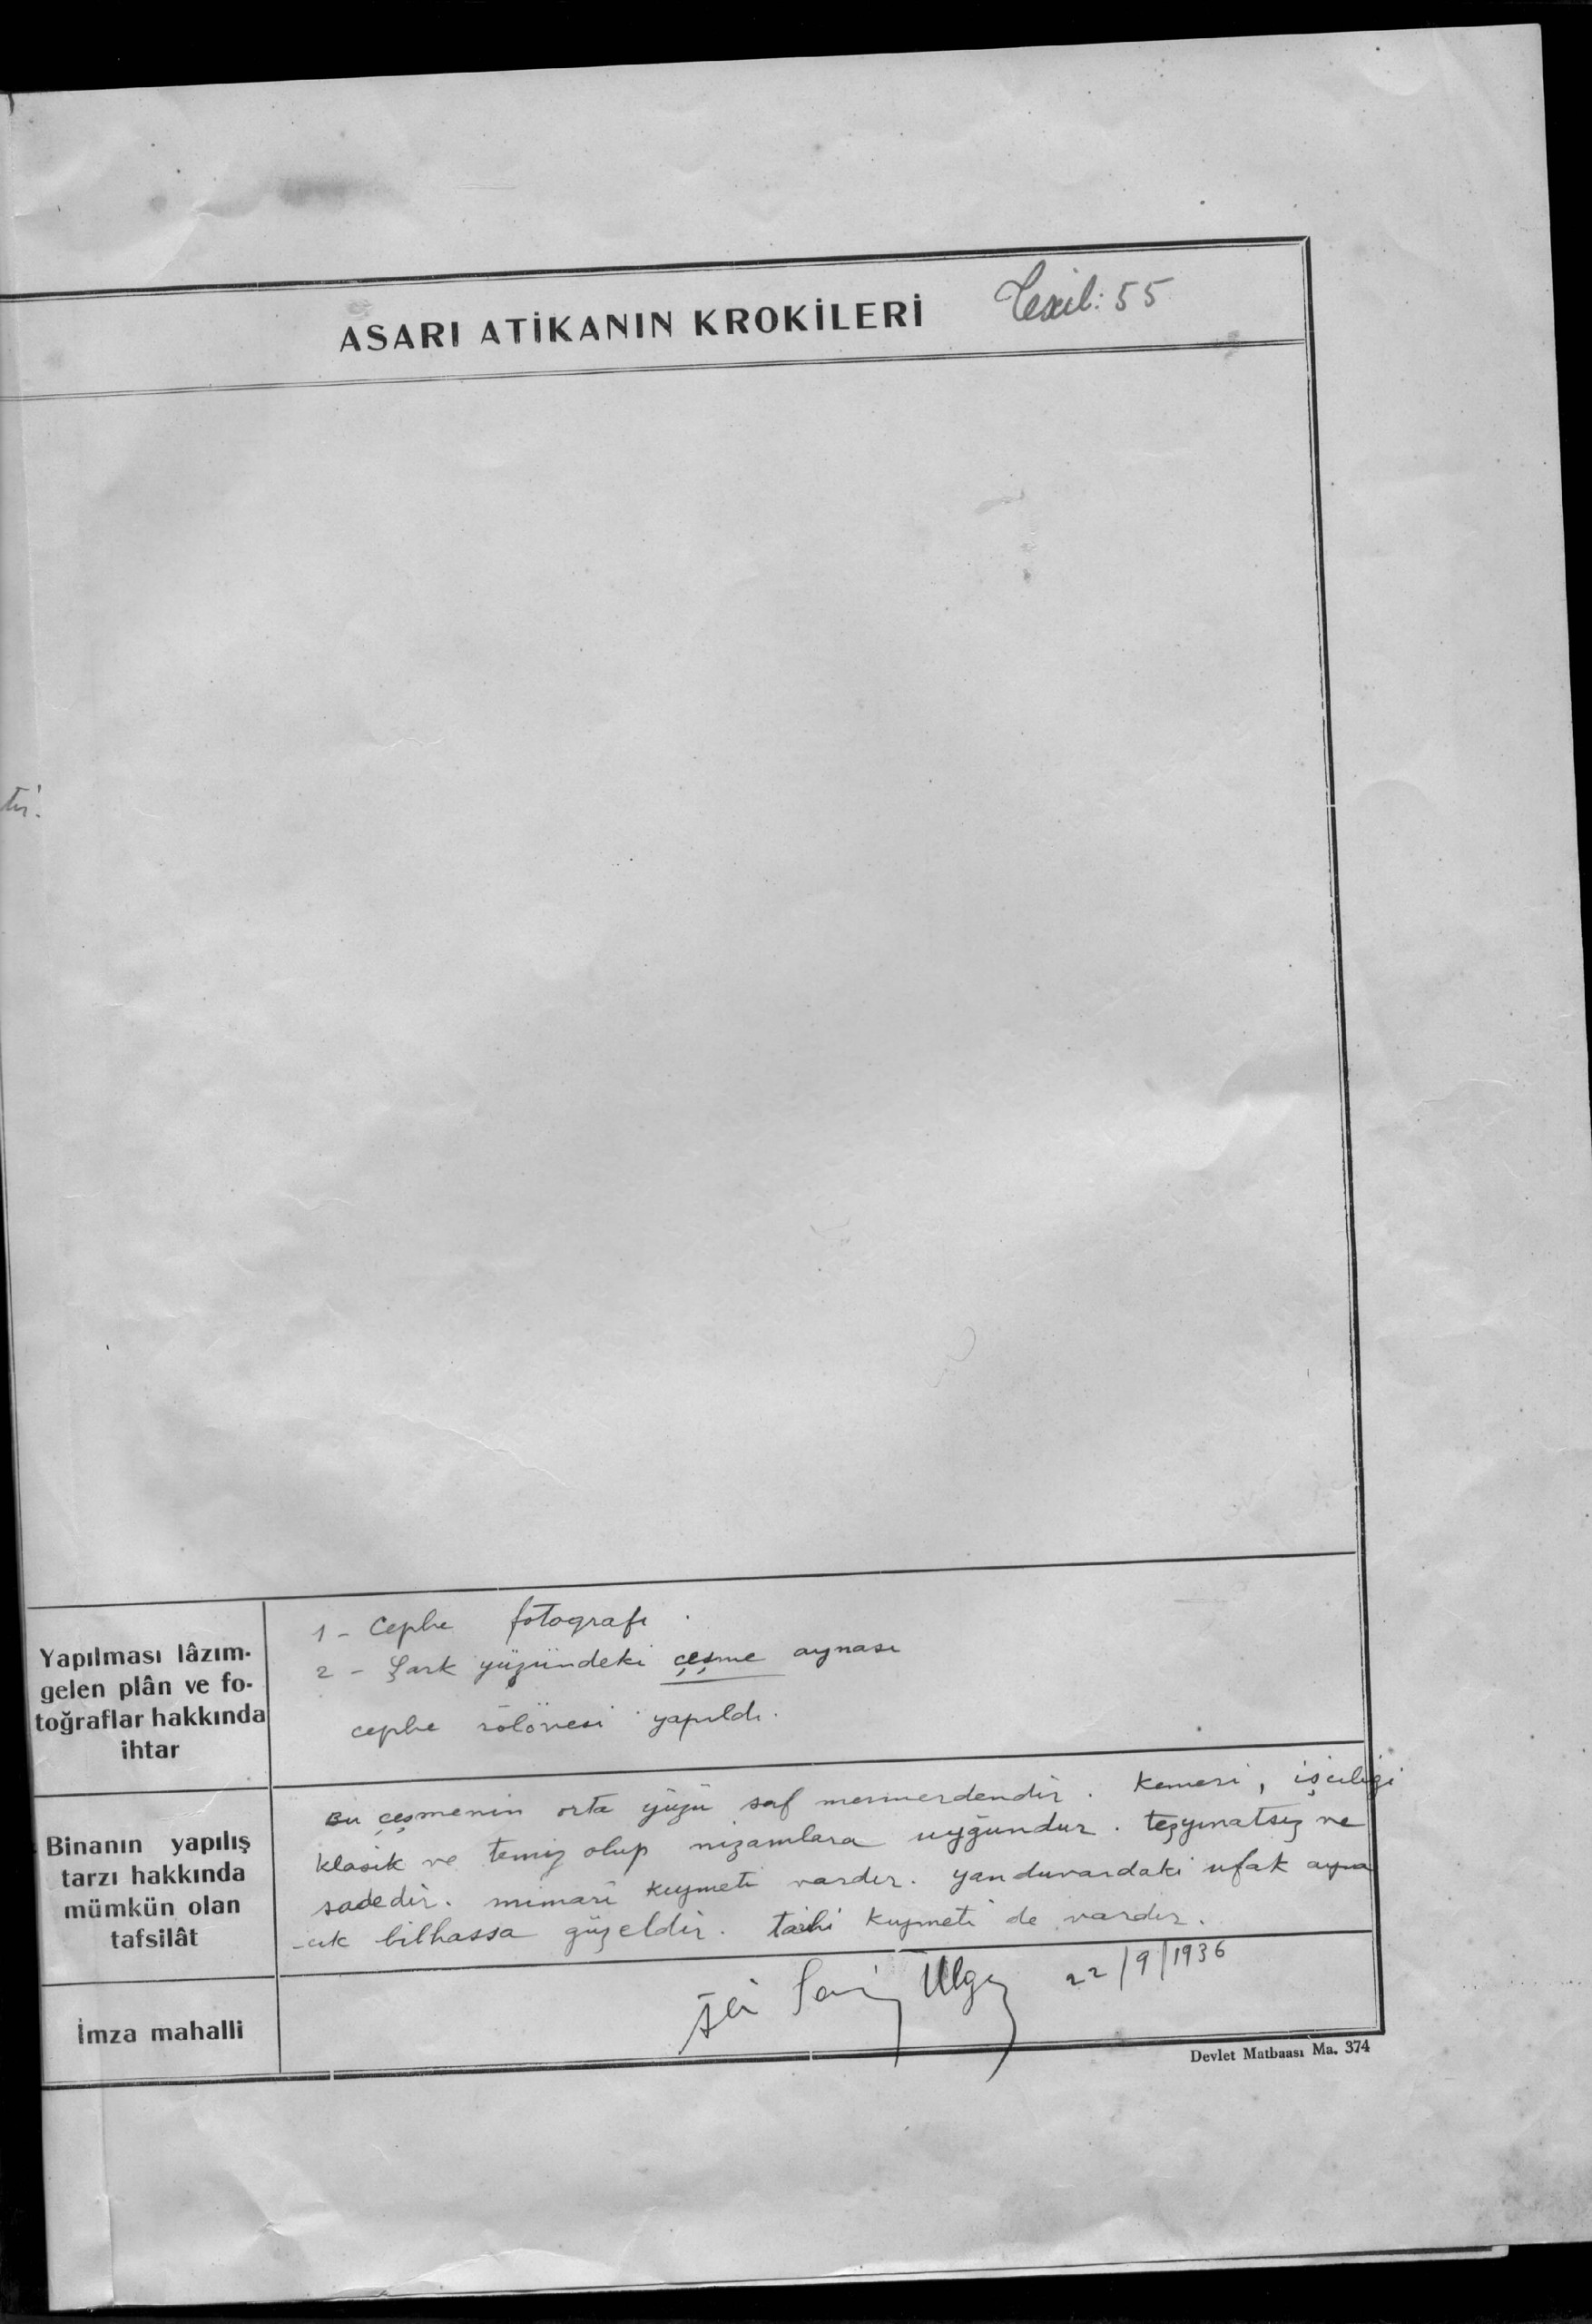 ASARI ATİKANIN KROKİLERİ
Tescil: 55
tir.
Yapılması lâzım-
gelen plân ve fo-
toğraflar hakkında
ihtar
1 - Cephe fotografı.
2 - Şark yüzündeki çeşme aynası
cephe rölövesi yapıldı.
Binanın yapılış
tarzı hakkında
mümkün olan
tafsilât
Bu çeşmenin orta yüzü saf mermerdendir. Kemeri, işçiliği
klasik ve temiz olup nizamlara uygundur. tezyinatsız ve
sadedir. mimarî kıymeti vardır. yan duvardaki ufak ayna
-cık bilhassa güzeldir. tarihi kıymeti de vardır.
İmza mahalli
Ülgen 22/9/1936
Devlet Matbaası Ma. 374